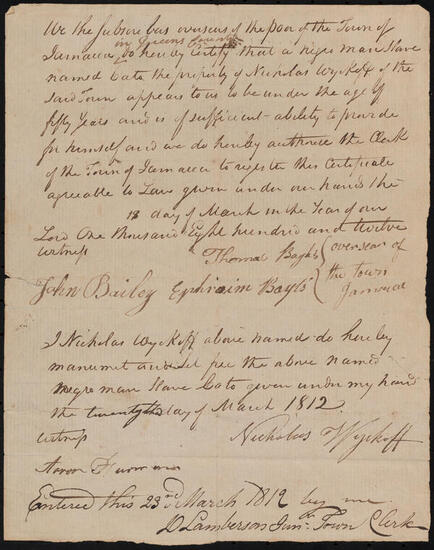 We the Subscribers overseers of the poor of the Town of
in Queens County
Jamaica do hereby Certify that a negro man Slave
named Cato the property of Nicholas Wyckoff of the
said Town appears to us to be under the age of
fifty Years and is of sufficient ability to provide
for himself and we do hereby authorise the Clerk
of the Town of Jamaica to register this Certificate
agreeable to Law given under our hands the
18 day of March in the Year of our
Lord One thousand Eight hundred and twelve
witness
Thomas Bayles
overseers of
the town
Jamaica
John Bailey Ephraim Bayles
I Nicholas Wyckoff above named do hereby
manumit and set free the above named
Negro man Slave Cato given under my hand
the twentyth day of March 1812.
witness
Nicholas Wyckoff
Aaron Furman
Entered this 23rd March 1812 by me
D Lamberson Junr. Town Clerk